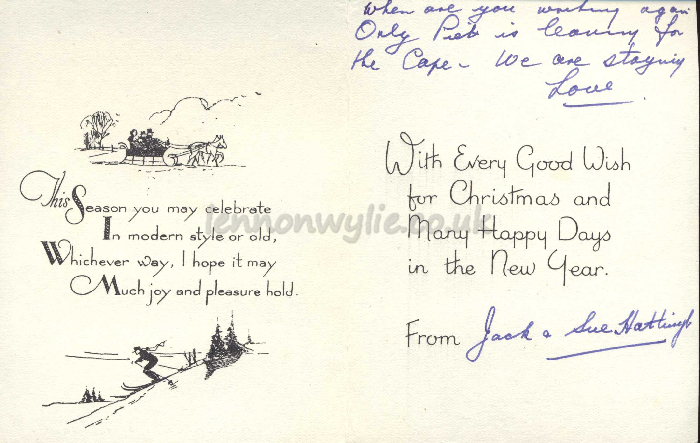 This Season you may celebrate
In modern style or old,
Whichever way, I hope it may
Much joy and pleasure hold.
When are you working again
Only Pieb is leaving for
the Cape - We are staying
Love
With Every Good Wish
for Christmas and
Many Happy Days
in the New Year.
From Jack & Sue Hattingh
lennonwylie.co.uk